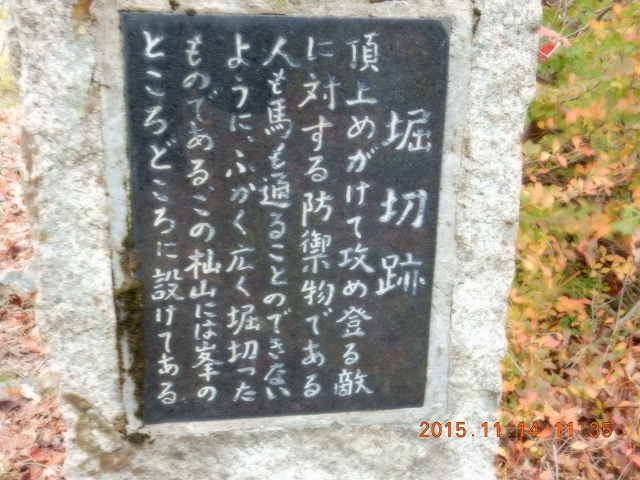 堀切跡
頂上めがけて攻め登る敵
に対する防禦物である
人も馬も通ることのできない
ように、ふかく広く堀切った
ものであるこの杣山には峯の
ところどころに設けてある
2015.11.14 11:35